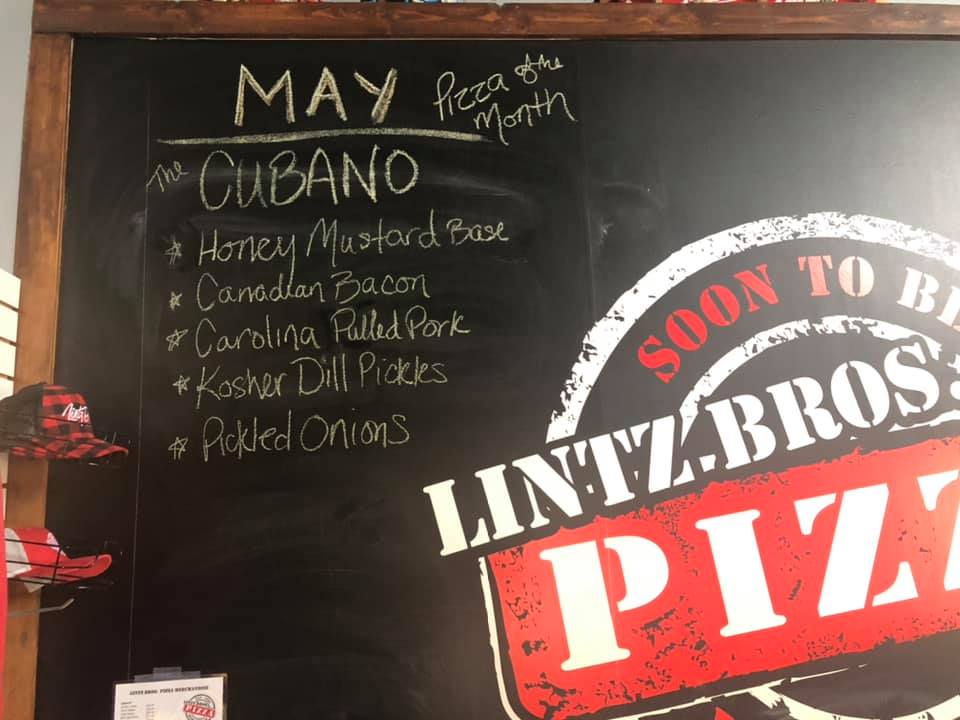 MAY Pizza of the Month
The CUBANO
* Honey Mustard Base
* Canadian Bacon
* Carolina Pulled Pork
* Kosher Dill Pickles
* Pickled Onions
SOON TO B
LINTZ BROS.
PIZZ
LINTZ BROS. PIZZA MERCHANDISE
PIZZA